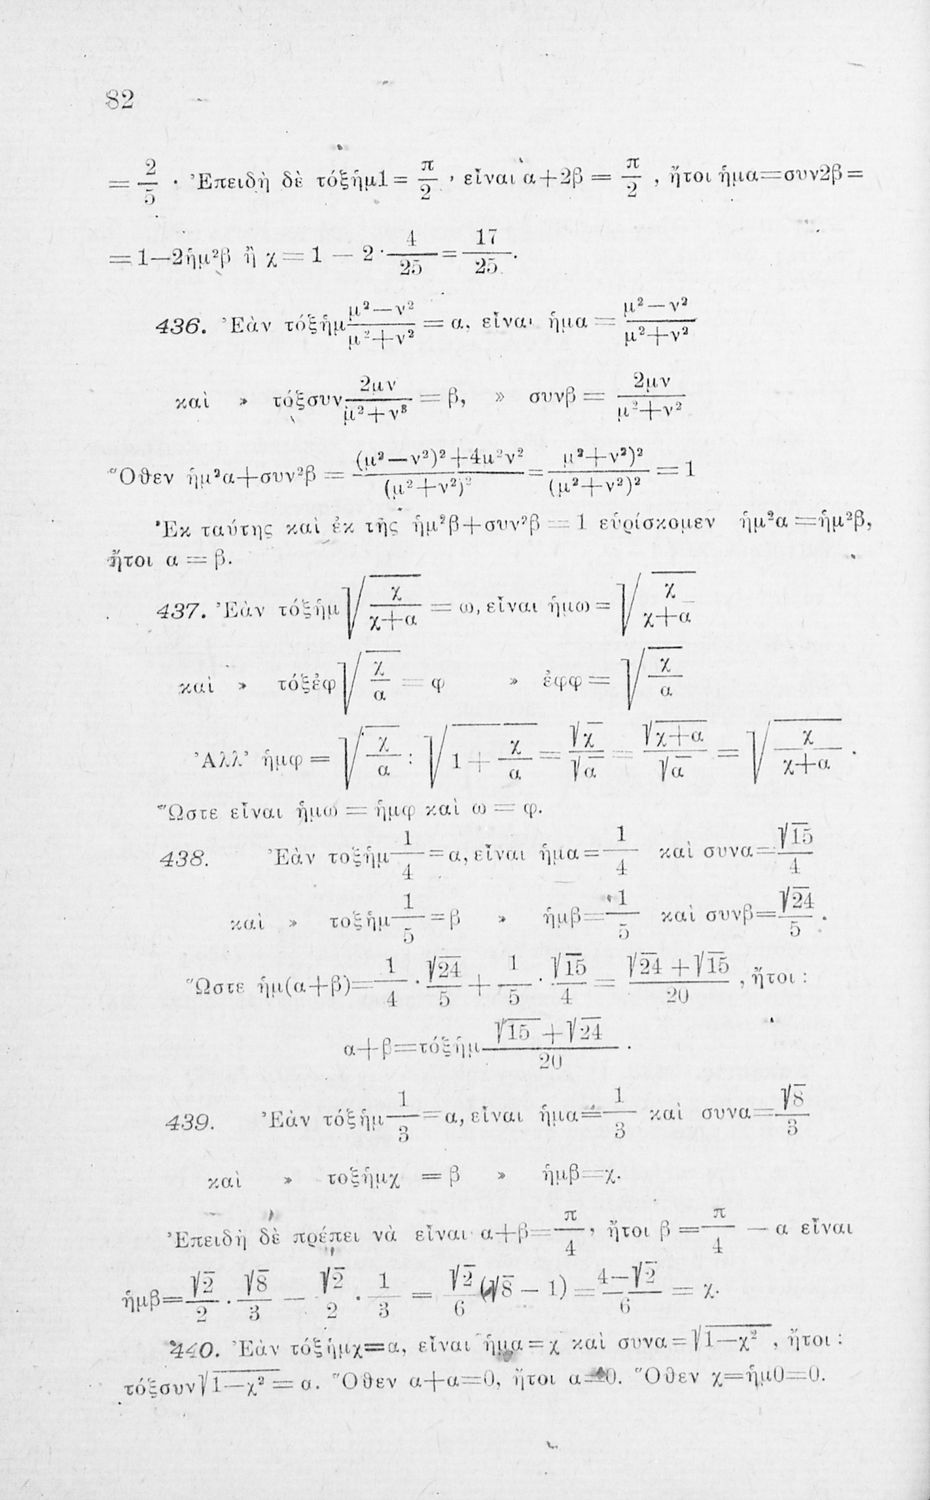 82
= 2/5 · Ἐπειδὴ δὲ τόξἡμ1 = π/2 , εἶναι α+2β = π/2 , ἤτοι ἡμα=συν2β=
=1—2ἡμ²β ἢ χ=1 — 2 · 4/25 = 17/25.
436. Ἐὰν τόξἡμ (μ²—ν²)/(μ²+ν²) = α, εἶναι ἡμα = (μ²—ν²)/(μ²+ν²)
καὶ » τόξσυν 2μν/(μ²+ν²) = β, » συνβ = 2μν/(μ²+ν²)
Ὅθεν ἡμ²α+συν²β = ((μ²—ν²)²+4μ²ν²)/(μ²+ν²)² = (μ²+ν²)²/(μ²+ν²)² = 1
Ἐκ ταύτης καὶ ἐκ τῆς ἡμ²β+συν²β = 1 εὑρίσκομεν ἡμ²α=ἡμ²β,
ἤτοι α = β.
437. Ἐὰν τόξἡμ √(χ/(χ+α)) = ω, εἶναι ἡμω = √(χ/(χ+α))
καὶ » τόξἐφ √(χ/α) = φ » ἐφφ = √(χ/α)
Ἀλλ' ἡμφ = √(χ/α) : √(1 + χ/α) = √χ/√α = √(χ+α)/√α = √(χ/(χ+α)) .
Ὥστε εἶναι ἡμω = ἡμφ καὶ ω = φ.
438. Ἐὰν τοξἡμ 1/4 = α, εἶναι ἡμα = 1/4 καὶ συνα = √15/4
καὶ » τοξἡμ 1/5 = β » ἡμβ = 1/5 καὶ συνβ = √24/5 .
Ὥστε ἡμ(α+β) = 1/4 · √24/5 + 1/5 · √15/4 = (√24 + √15)/20 , ἤτοι :
α+β=τόξἡμ (√15 + √24)/20 .
439. Ἐὰν τόξἡμ 1/3 = α, εἶναι ἡμα = 1/3 καὶ συνα = √8/3
καὶ » τοξἡμχ = β » ἡμβ=χ.
Ἐπειδὴ δὲ πρέπει νὰ εἶναι α+β = π/4 , ἤτοι β = π/4 — α εἶναι
ἡμβ = √2/2 · √8/3 — √2/2 · 1/3 = √2/6 (√8 — 1) = (4—√2)/6 = χ.
440. Ἐὰν τόξἡμχ=α, εἶναι ἡμα=χ καὶ συνα=√(1—χ²) , ἤτοι :
τόξσυν√(1—χ²) = α. Ὅθεν α+α=0, ἤτοι α=0. Ὅθεν χ=ἡμ0=0.